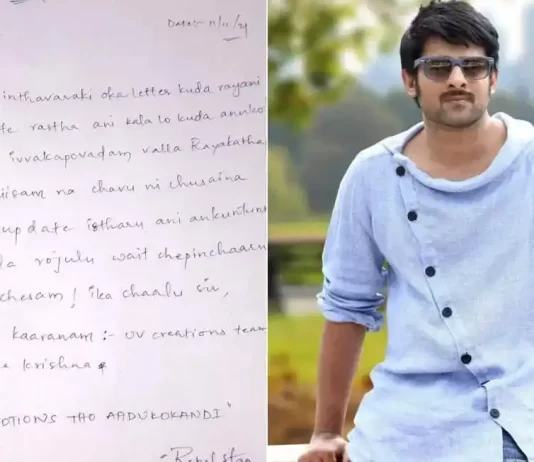 Date:- 11/11/21
inthavaraki oka letter kuda rayani
rastha ani kala lo kuda anuko
ivvakapovadam valla Rayakatha
na chavu ni chusaina
update istharu ani ankuntunt
rojulu wait chepinchaaru
chesam! ika chaalu sir,
kaaranam:- UV creations team
krishna
OTIONS THO AADUKOKANDI"
- Rebel star